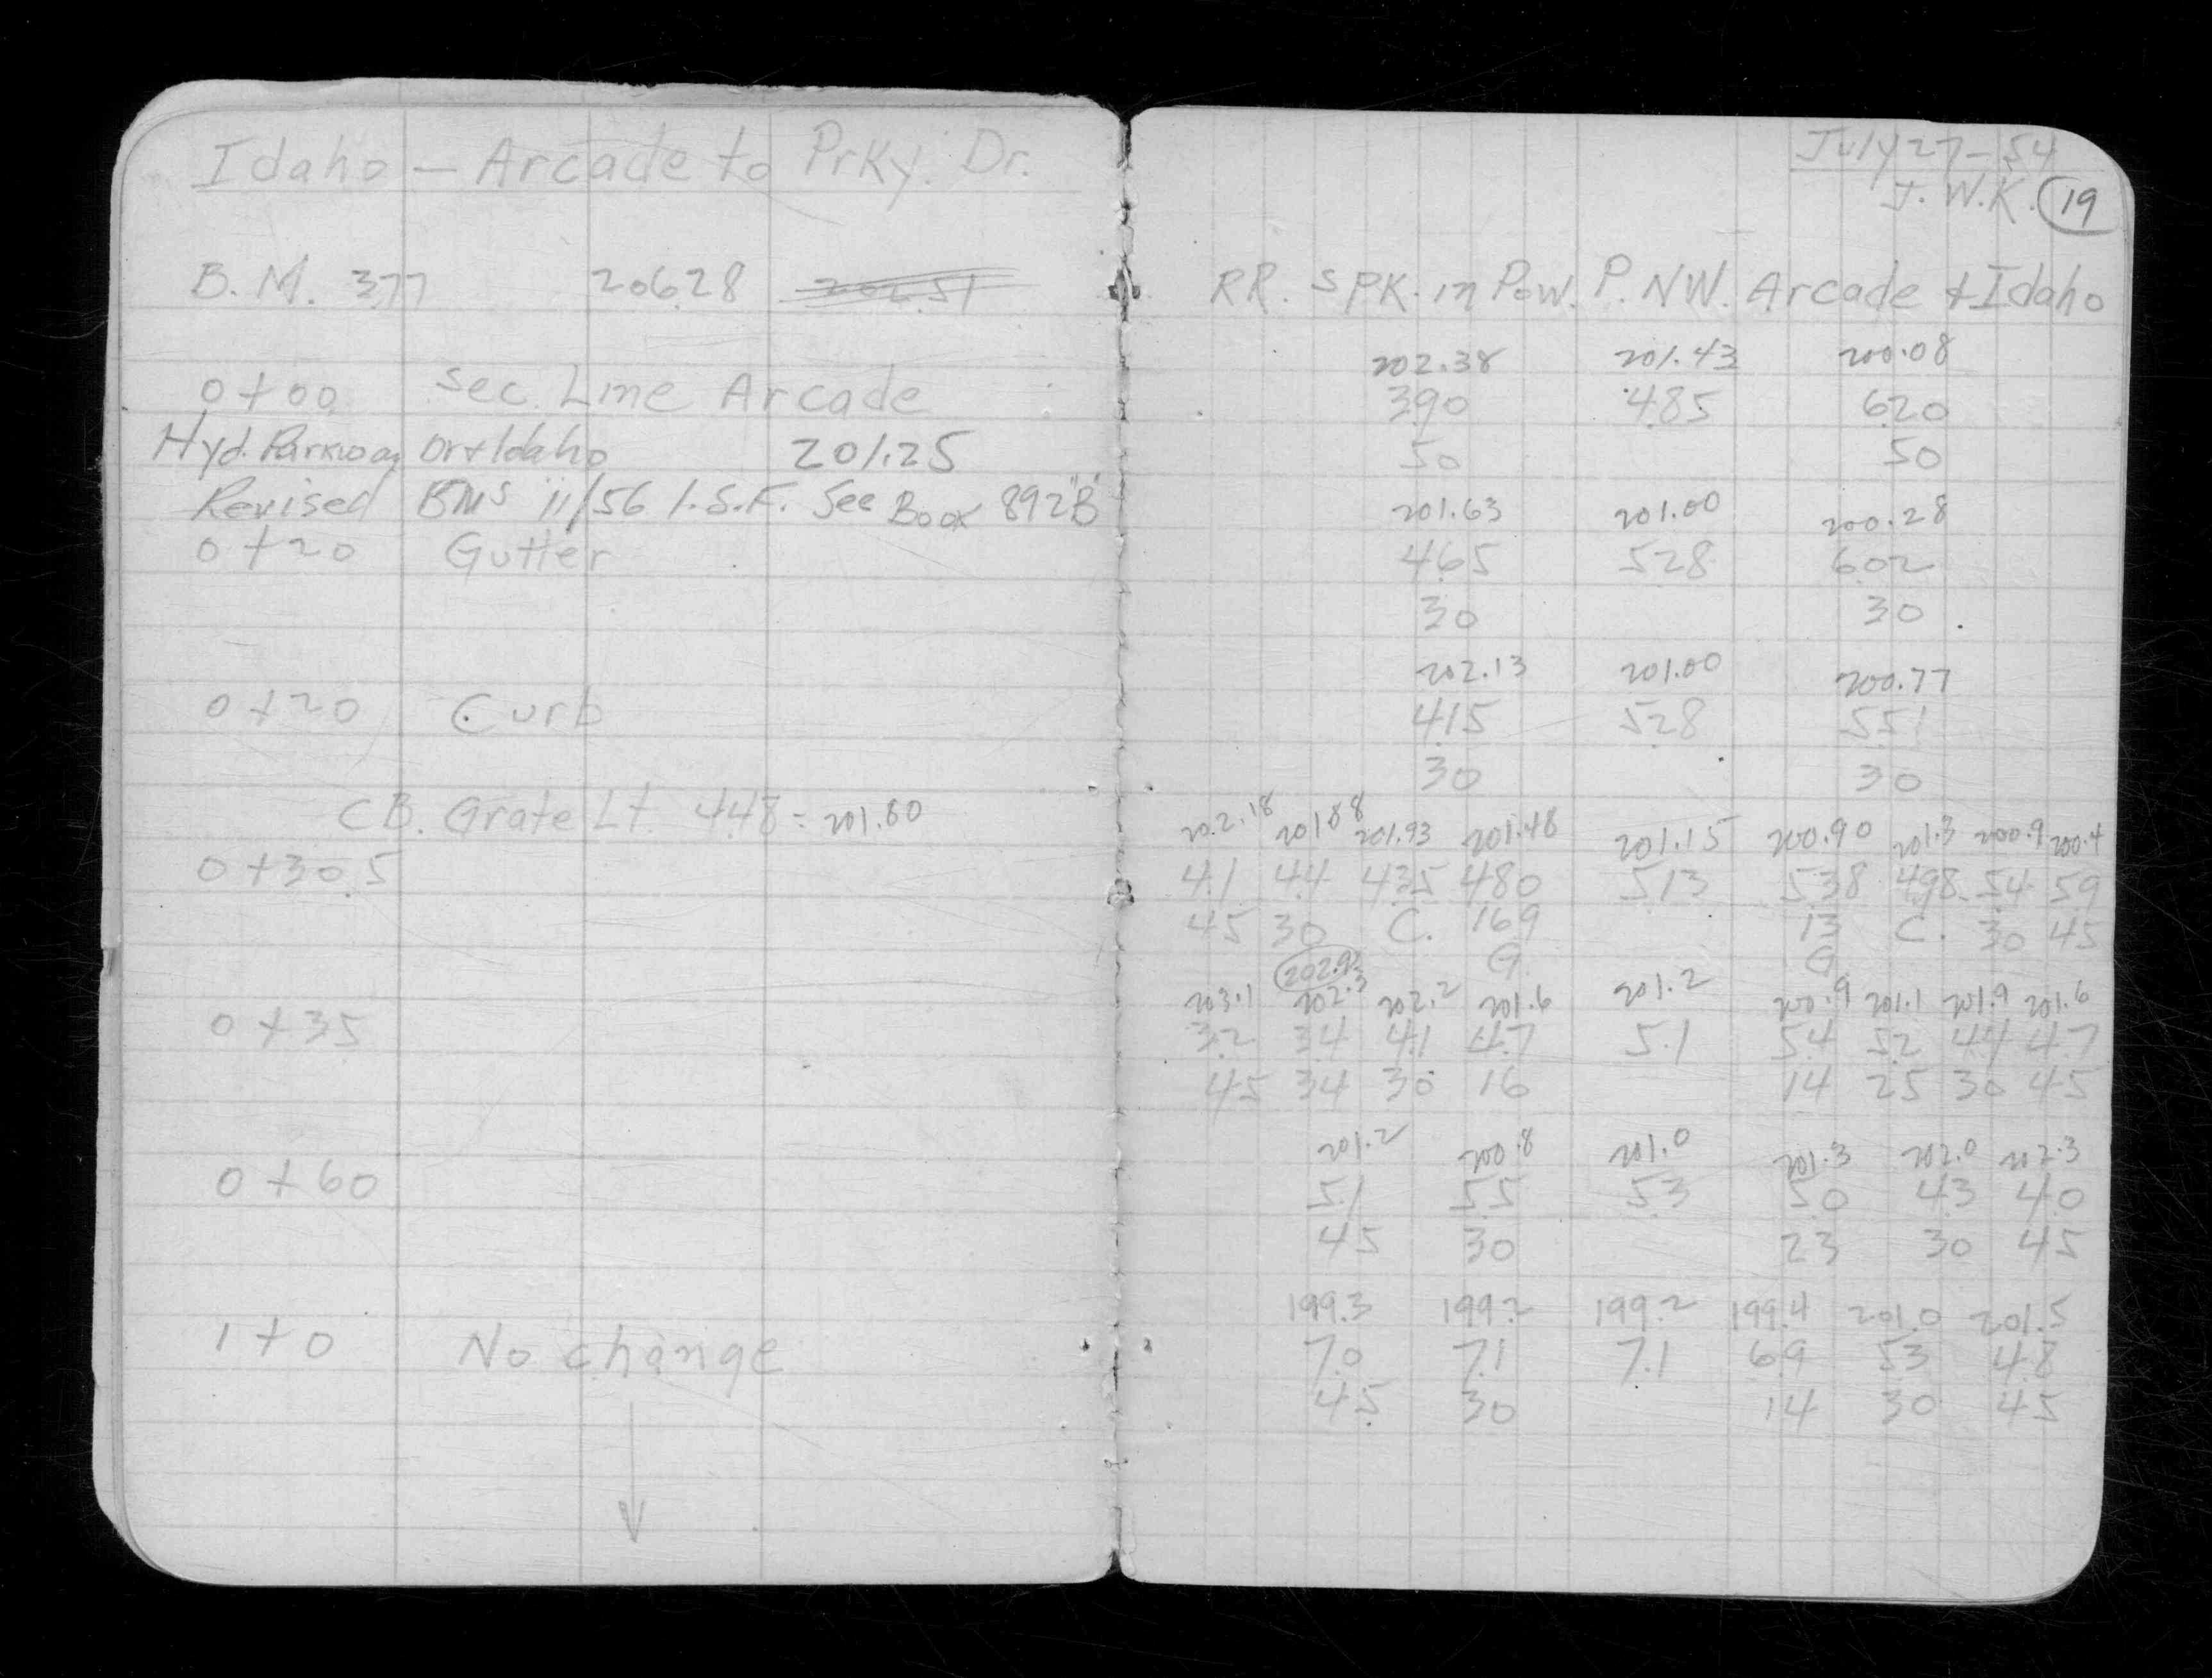 Idaho — Arcade to Prky. Dr.
B.M. 3.77 206.28
0+00 Sec. Line Arcade
Hyd. Parkway Dr + Idaho 201.25
Revised BMs 11/56 I.S.F. See Book 892"B"
0+20 Gutter
0+20 Curb
CB. Grate Lt. 4.48 = 201.80
0+30.5
0+35
0+60
1+0 No change
July 27-54
J.W.K. 19
RR. SPK. in Pow. P. NW. Arcade + Idaho
202.38 201.43 200.08
3.90 4.85 6.20
50 50
201.63 201.00 200.28
4.65 5.28 6.02
30 30
202.13 201.00 200.77
4.15 5.28 5.51
30 30
202.18 201.88 201.93 201.48 201.15 200.90 201.3 200.9 200.4
4.1 4.4 4.35 4.80 5.13 5.38 4.98 5.4 5.9
45 30 C. 16.9 13 C. 30 45
G. G
202.92
203.1 202.3 202.2 201.6 201.2 200.9 201.1 201.9 201.6
3.2 3.4 4.1 4.7 5.1 5.4 5.2 4.4 4.7
45 34 30 16 14 25 30 45
201.2 200.8 201.0 201.3 202.0 202.3
5.1 5.5 5.3 5.0 4.3 4.0
45 30 23 30 45
199.3 199.2 199.2 199.4 201.0 201.5
7.0 7.1 7.1 6.9 5.3 4.8
45 30 14 30 45